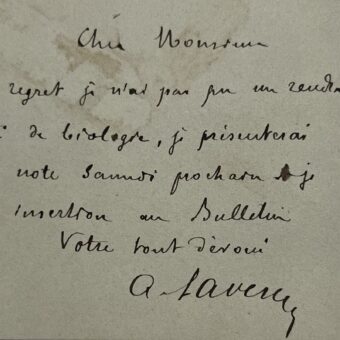 Cher Monsieur
regret je n'ai pas pu me rendre
de biologie, je présenterai
note Samedi prochain & je
insertion au Bulletin
Votre tout dévoué
A. Laveran